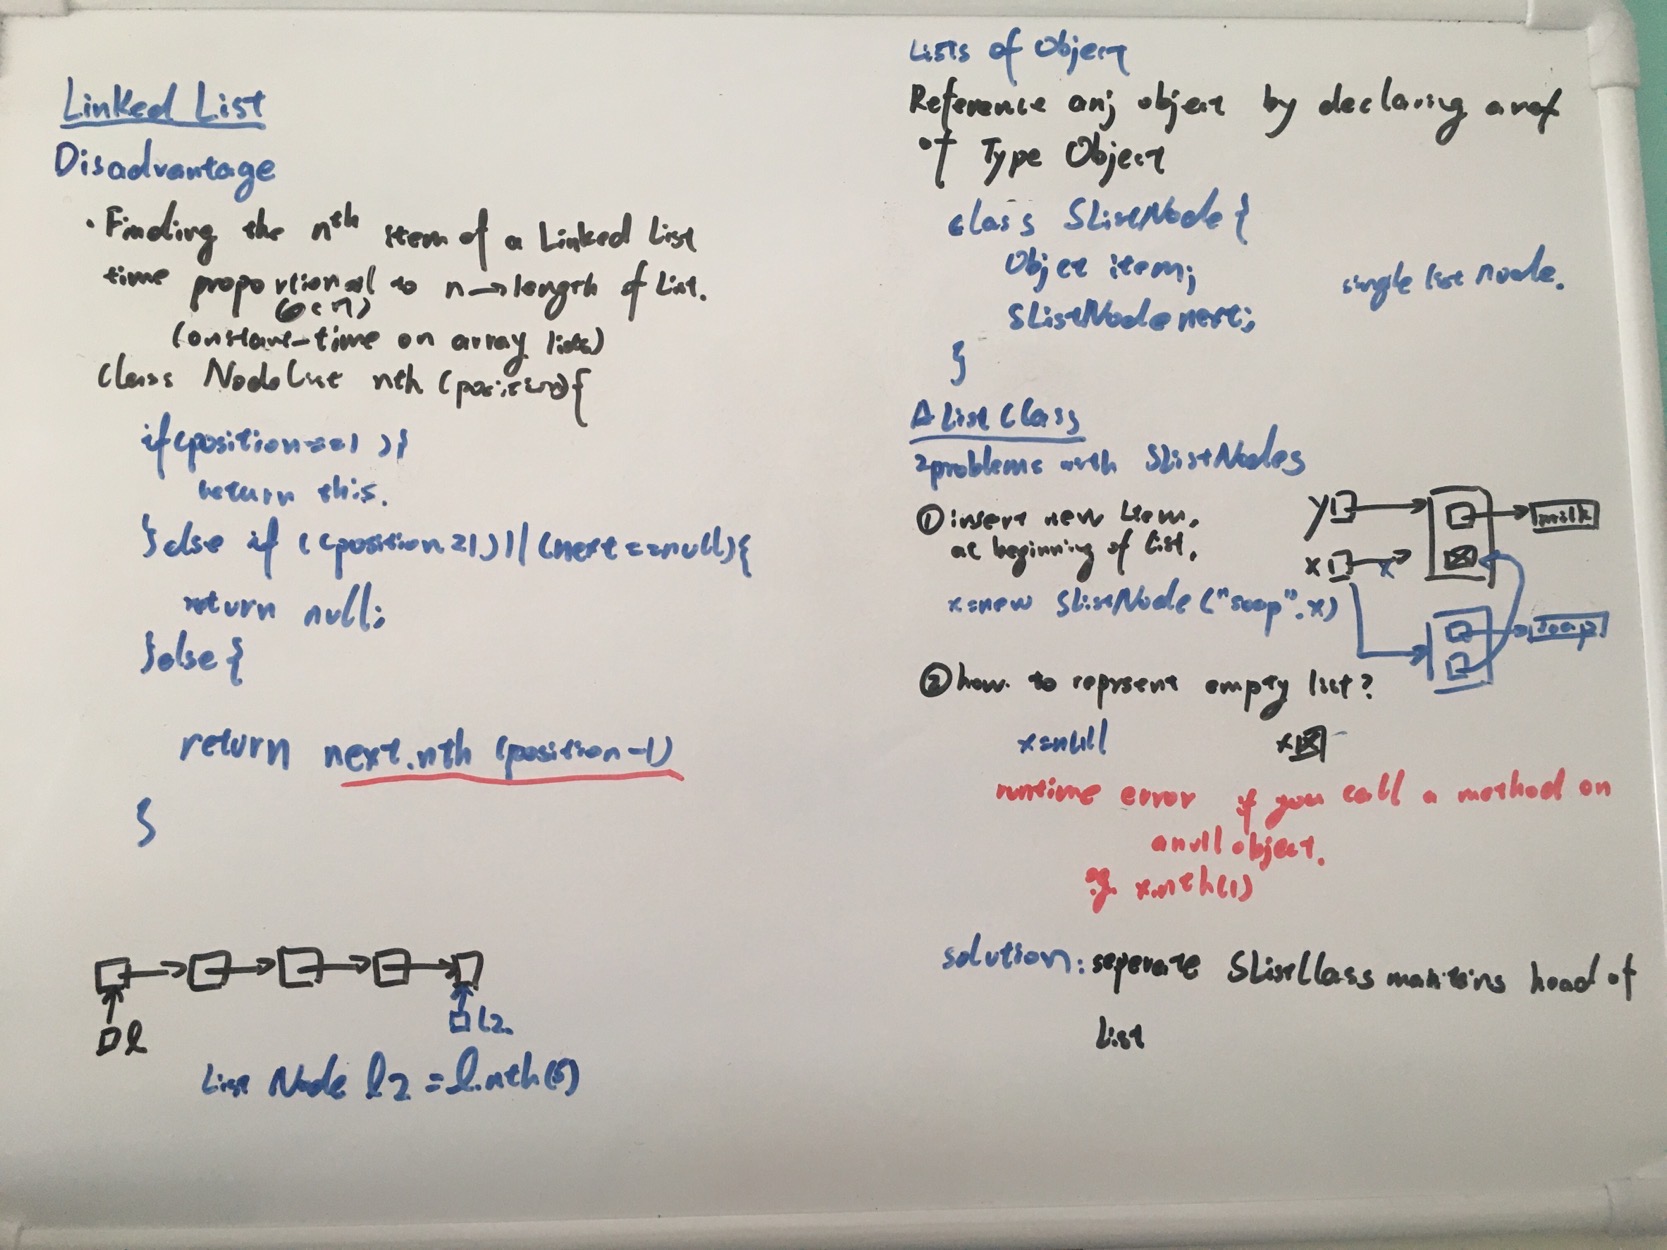 Linked List
Disadvantage
· Finding the nth item of a Linked List
time proportional to n → length of List.
Θ(n)
(constant-time on array lists)
class NodeList nth (position){
if(position==1){
return this.
}else if ((position<1)||(next==null){
return null;
}else{
return next.nth (position-1)
}
l
l2.
List Node l2 = l.nth(5)
Lists of Object
Reference any object by declaring a ref
of Type Object
class SListNode {
Object item;
single list node.
SListNode next;
}
A List Class
2 problems with SListNodes
① insert new item,
at beginning of List,
x=new SListNode ("soap".x)
y
milk
x
x
soap
② how to reprsent empty list?
x=null
x
runtime error if you call a method on
a null object.
e.g. x.nth(1)
solution: seperate SListClass maintins head of
List